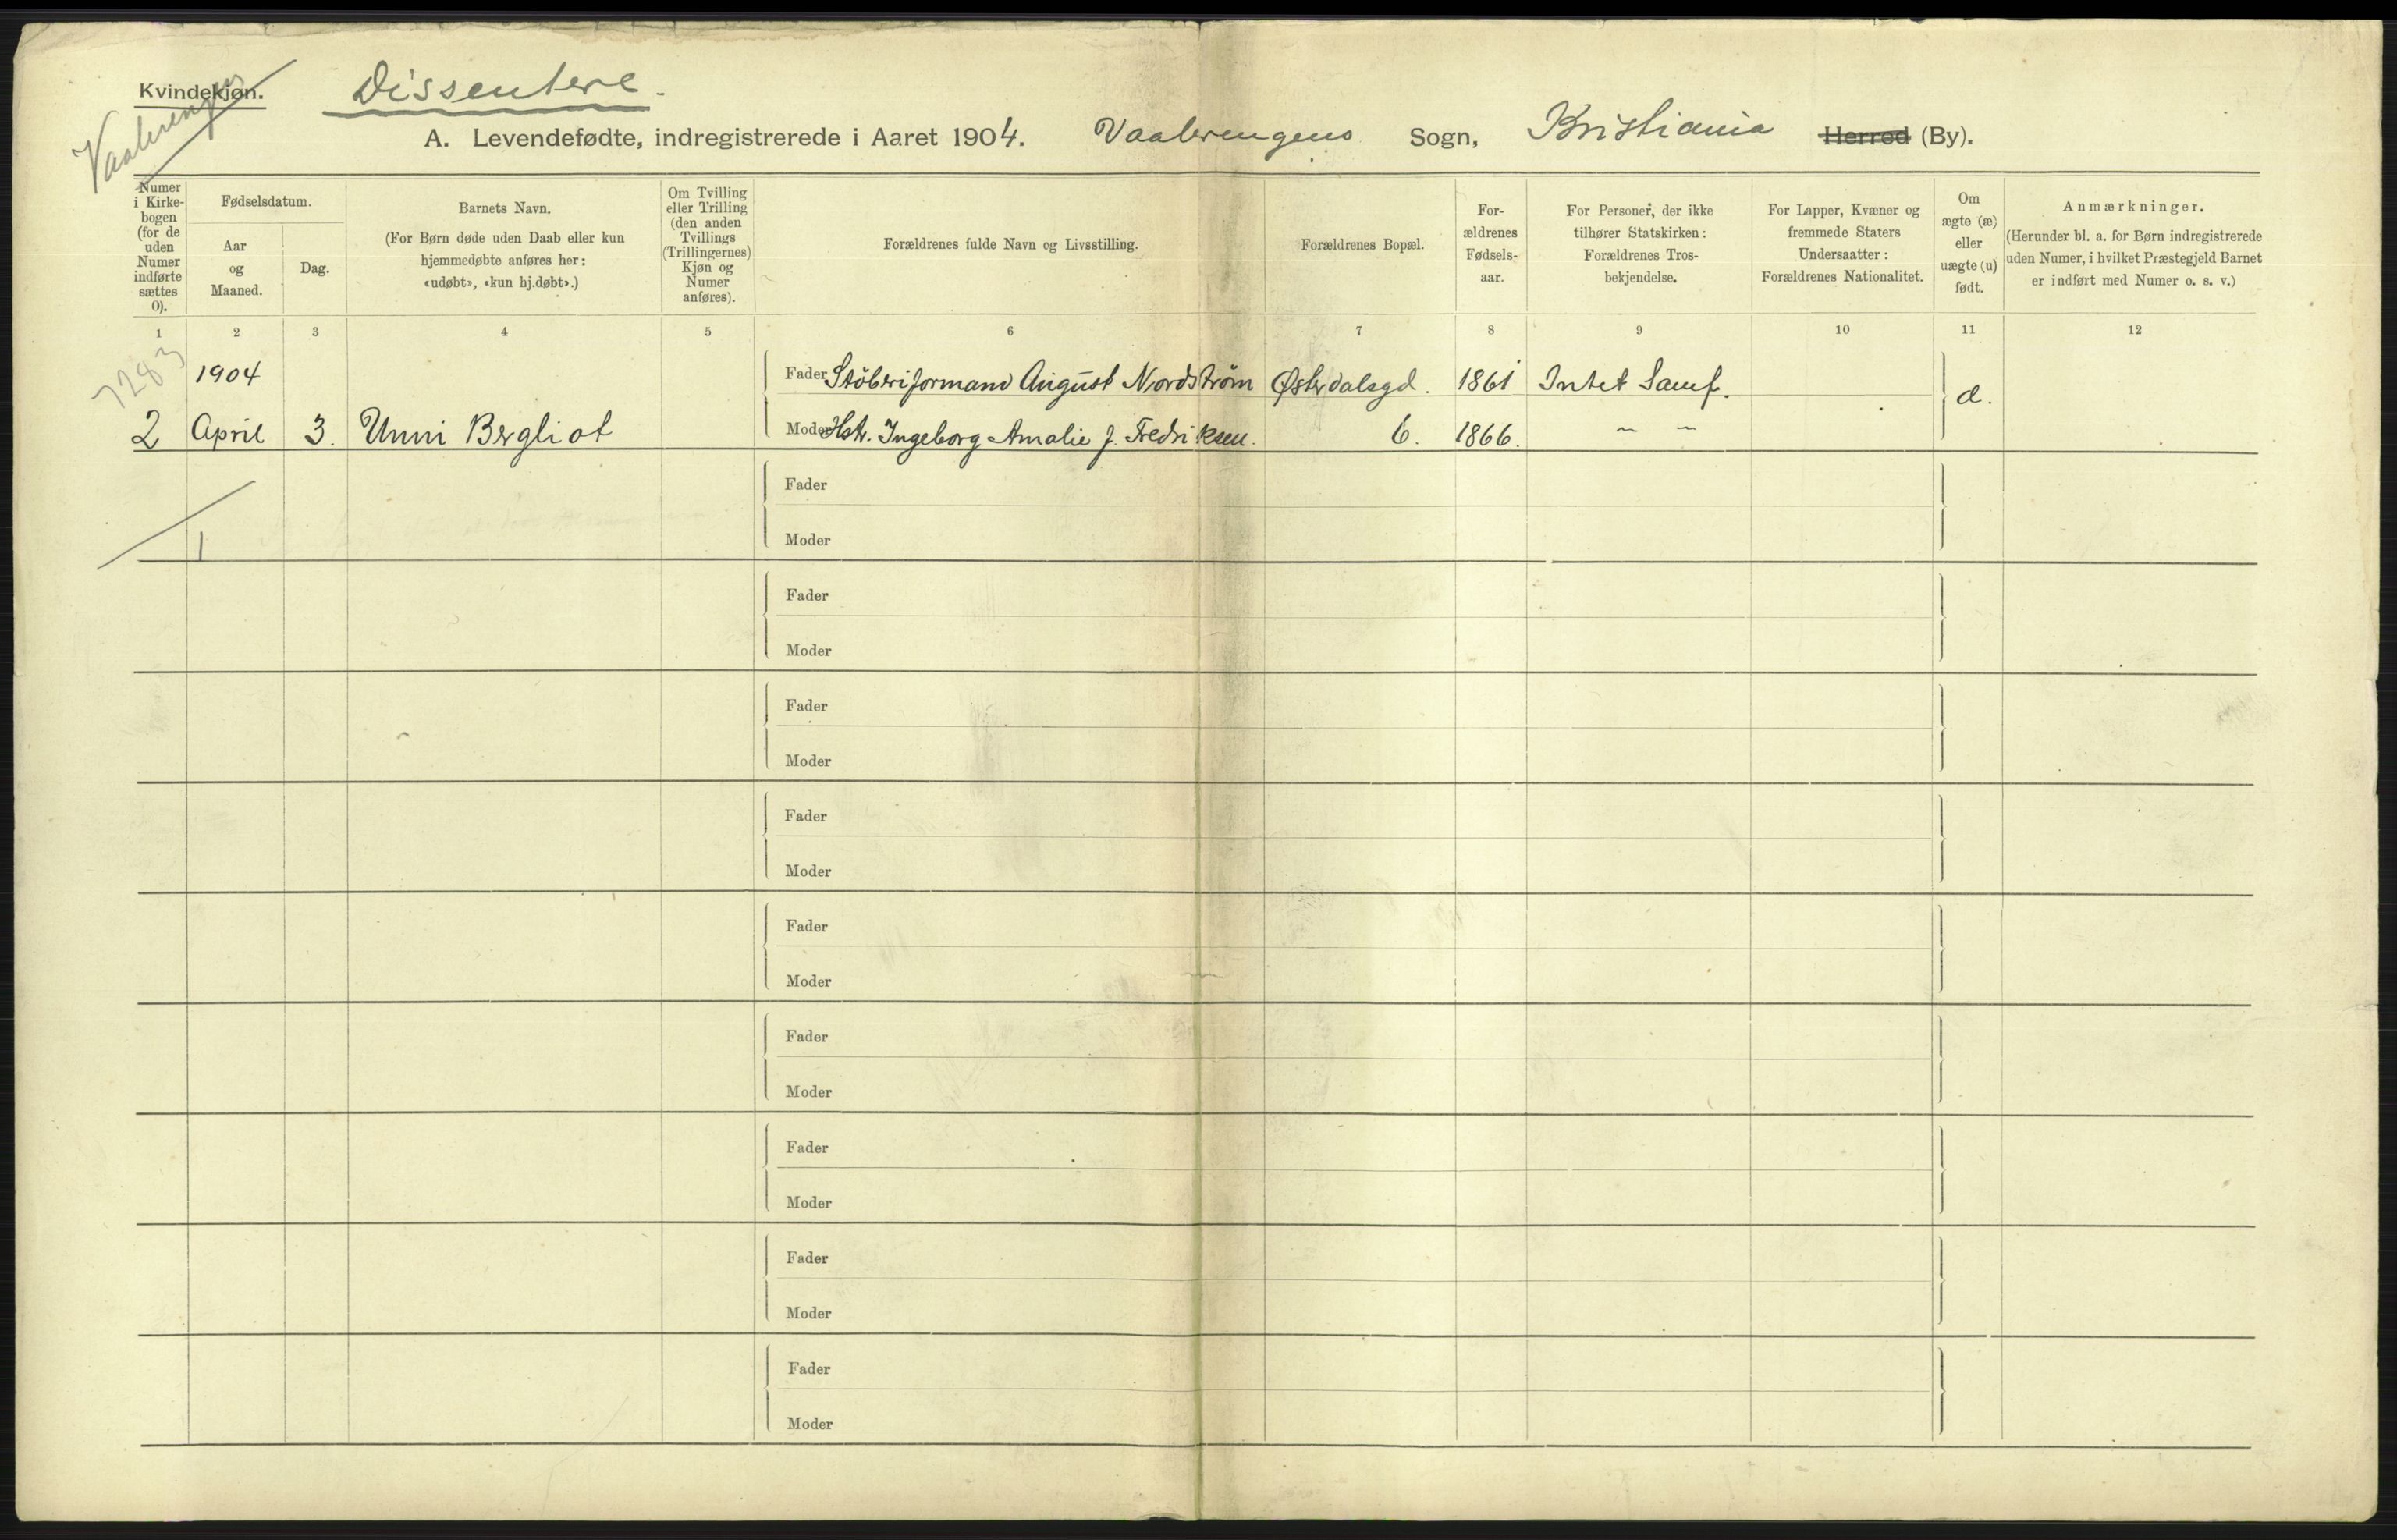 Kvindekjøn.
Dissentere.
Vaalerengen
A. Levendefødte, indregistrerede i Aaret 1904. Vaalerengens Sogn, Kristiania Herred (By).
Numer i Kirkebogen (for de uden Numer indførte sættes 0).
Fødselsdatum.
Aar og Maaned.
Dag.
Barnets Navn.
(For Børn døde uden Daab eller kun
hjemmedøbte anføres her:
«udøbt», «kun hj.døbt».)
Om Tvilling
eller Trilling
(den anden
Tvillings
(Trillingernes)
Kjøn og
Numer
anføres).
Forældrenes fulde Navn og Livsstilling.
Forældrenes Bopæl.
For-
ældrenes
Fødsels-
aar.
For Personer, der ikke
tilhører Statskirken:
Forældrenes Tros-
bekjendelse.
For Lapper, Kvæner og
fremmede Staters
Undersaatter:
Forældrenes Nationalitet.
Om
ægte (æ)
eller
uægte (u)
født.
Anmærkninger.
(Herunder bl. a. for Børn indregistrerede
uden Numer, i hvilket Præstegjeld Barnet
er indført med Numer o. s. v.)
1 2 3 4 5 6 7 8 9 10 11 12
7283
1904 Fader Stöberiformand August Nordström Østerdalsgd. 1861 Intet Samf. æ.
2 April 3. Unni Bergliot Moder Hstr. Ingeborg Amalie f. Fredriksen. 6. 1866. ~ ~
Fader
1 Moder
Fader
Moder
Fader
Moder
Fader
Moder
Fader
Moder
Fader
Moder
Fader
Moder
Fader
Moder
Fader
Moder